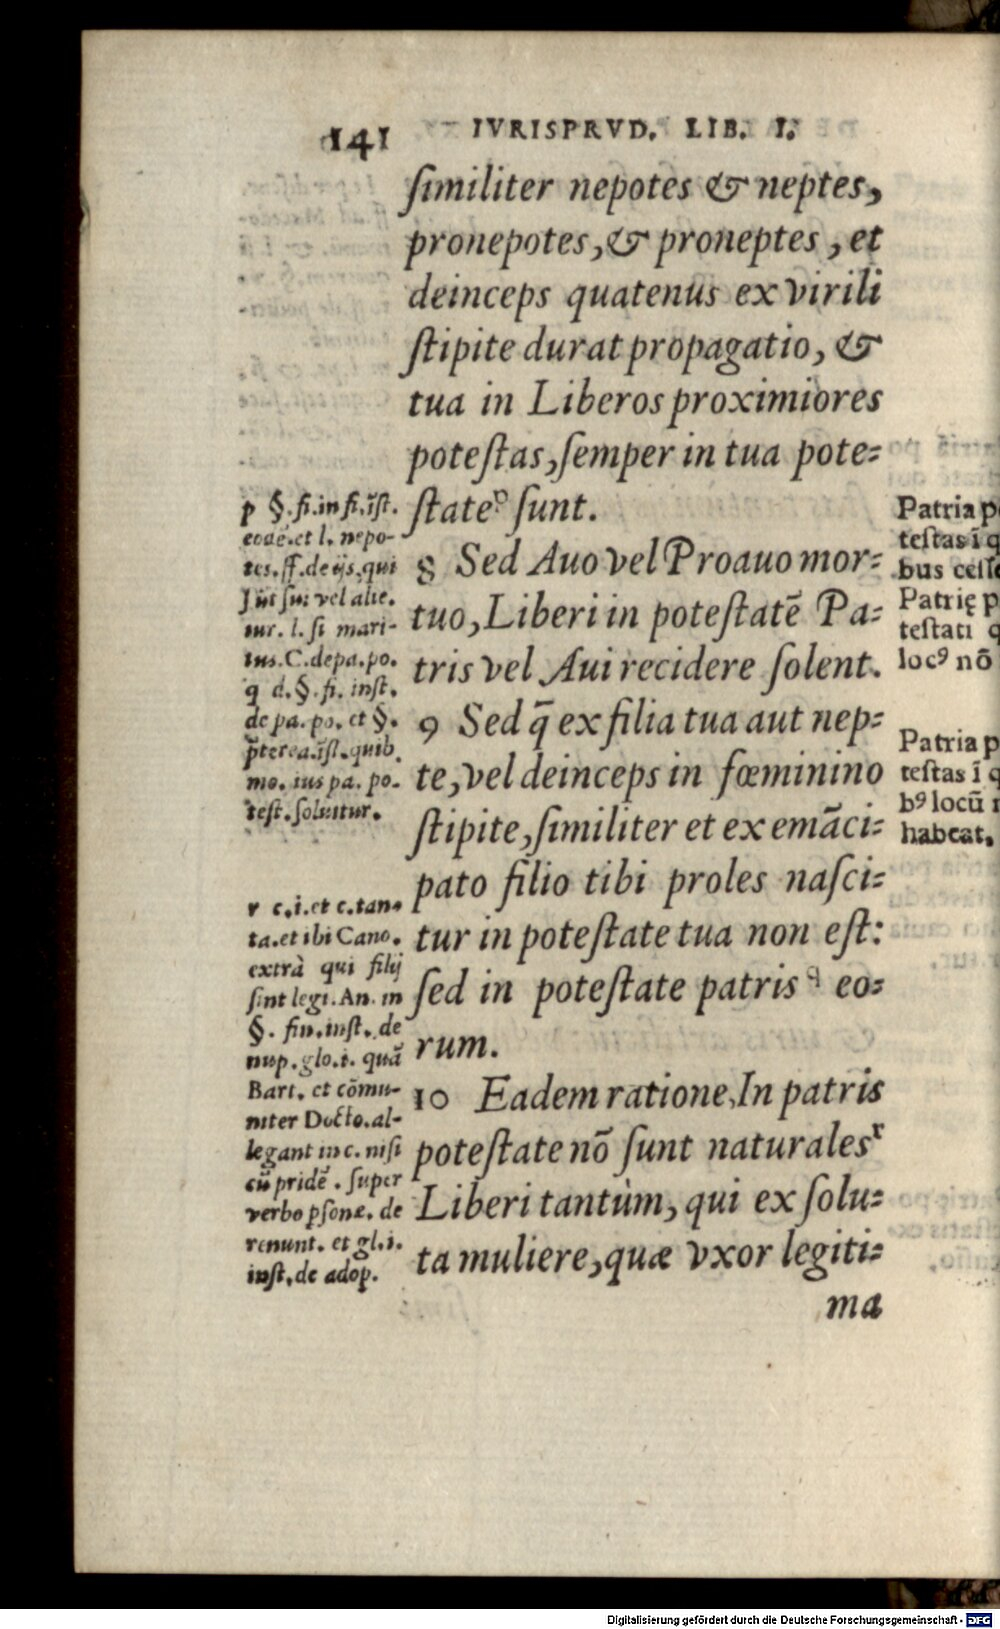 141 IVRISPRVD. LIB. I.
ſimiliter nepotes & neptes,
pronepotes, & proneptes, et
deinceps quatenus ex virili
ſtipite durat propagatio, &
tua in Liberos proximiores
poteſtas, ſemper in tua pote=
ſtate ᵖ ſunt.
8 Sed Auo vel Proauo mor=
tuo, Liberi in poteſtatē Pa=
tris vel Aui recidere ſolent.
9 Sed q̄ ex filia tua aut nep=
te, vel deinceps in fœminino
ſtipite, ſimiliter et ex emāci=
pato filio tibi proles naſci=
tur in poteſtate tua non eſt:
ſed in poteſtate patris q eo=
rum.
10 Eadem ratione, In patris
poteſtate nō ſunt naturales ʳ
Liberi tantùm, qui ex ſolu=
ta muliere, quæ vxor legiti=
ma
p §. fi. in fi. īſt.
eodē. et l. nepo-
tes. ff. de ijs, qui
ſui vel alie.
iur. l. ſi mari-
tus. C. de pa. po.
q d. §. fi. inſt.
de pa. po. et §.
p̄terea. īſt. quib.
mo. ius pa. po-
teſt. ſoluitur.
r c. i. et c. tan-
ta. et ibi Cano.
extrà qui filij
ſint legi. An. in
§. fin. inſt. de
nup. glo. i. quā
Bart. et cōmu-
niter Docto. al-
legant in c. niſi
cū pridē. ſuper
verbo pſonæ. de
renunt. et gl. i.
inſt. de adop.
Patria p
teſtas ī q
bus ceſſe
Patrię p
teſtati q
locꝰ nō
Patria p
teſtas ī q
bꝰ locū
habeat.
Digitalisierung gefördert durch die Deutsche Forschungsgemeinschaft - DFG